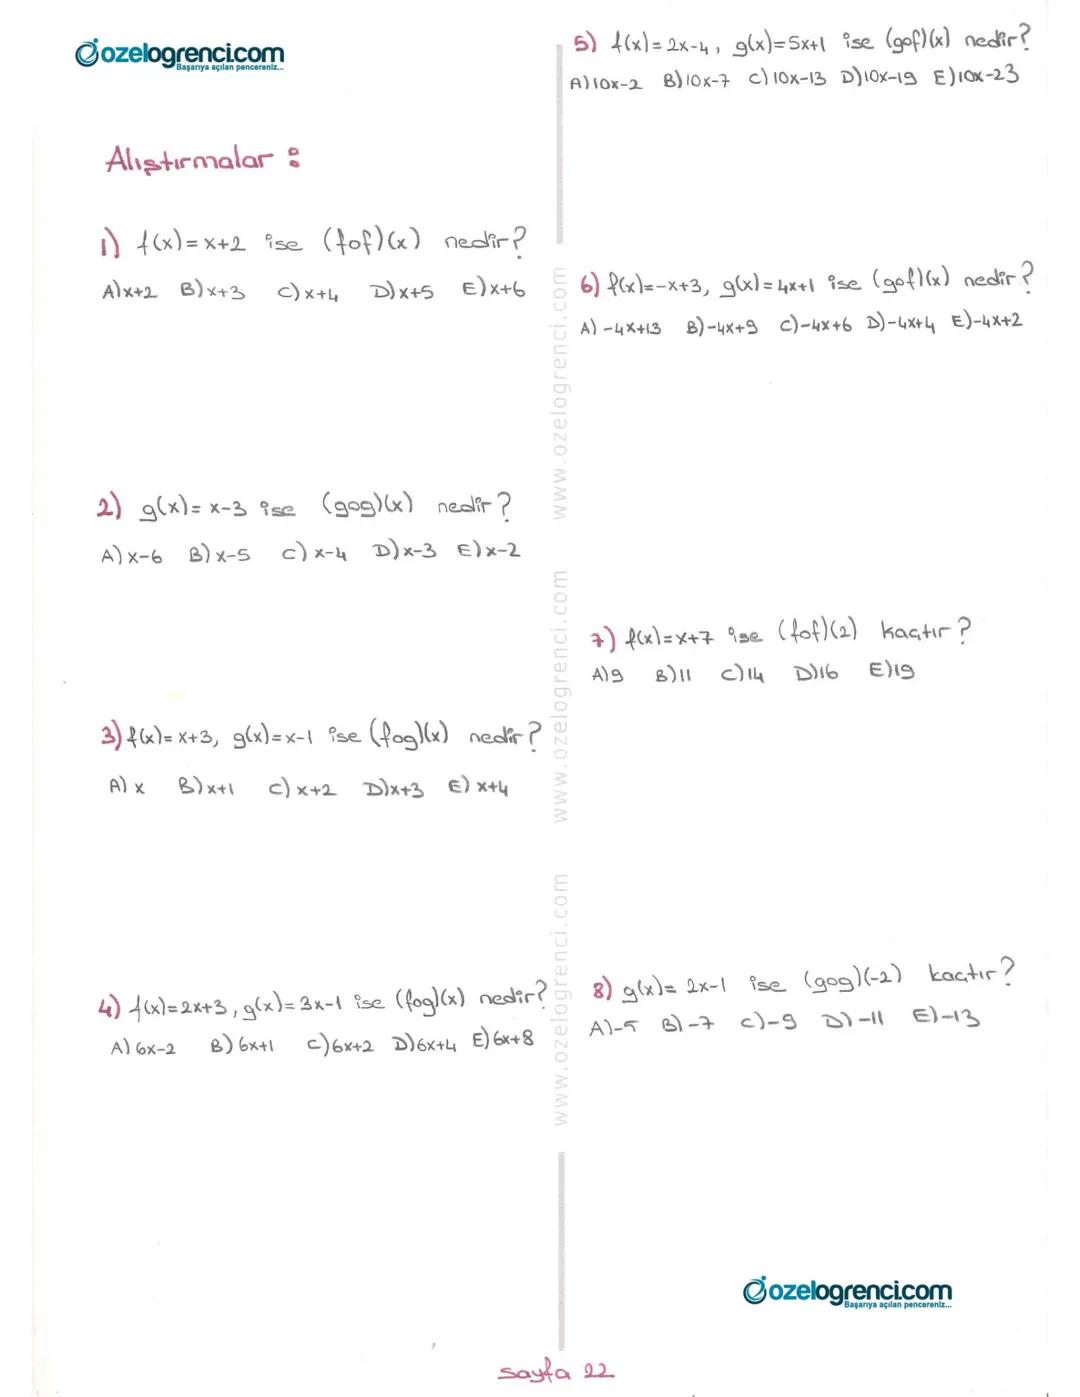 ozelogrenci.com
Başarıya açılan pencereniz...
Alıştırmalar :
1) f(x)=x+2 ise (fof)(x) nedir?
A)x+2 B)x+3 C)x+4 D)x+5 E)x+6
2) g(x)=x-3 ise (gog)(x) nedir?
A)x-6 B)x-5 C)x-4 D)x-3 E)x-2
3) f(x)=x+3, g(x)=x-1 ise (fog)(x) nedir?
A) x B)x+1 C)x+2 D)x+3 E) x+4
4) f(x)=2x+3, g(x)=3x-1 ise (fog)(x) nedir?
A) 6x-2 B) 6x+1 C)6x+2 D)6x+4 E)6x+8
www.ozelogrenci.com
www.ozelogrenci.com
www.ozelogrenci.com
5) f(x)=2x-4, g(x)=5x+1 ise (gof)(x) nedir?
A)10x-2 B)10x-7 C)10x-13 D)10x-19 E)10x-23
6) f(x)=-x+3, g(x)=4x+1 ise (gof)(x) nedir?
A) -4x+13 B)-4x+9 C)-4x+6 D)-4x+4 E)-4x+2
7) f(x)=x+7 ise (fof)(2) kaçtır?
A)9 B)11 C)14 D)16 E)19
8) g(x)= 2x-1 ise (gog)(-2) kaçtır?
A)-5 B)-7 C)-9 D)-11 E)-13
ozelogrenci.com
Başarıya açılan pencereniz...
sayfa 22